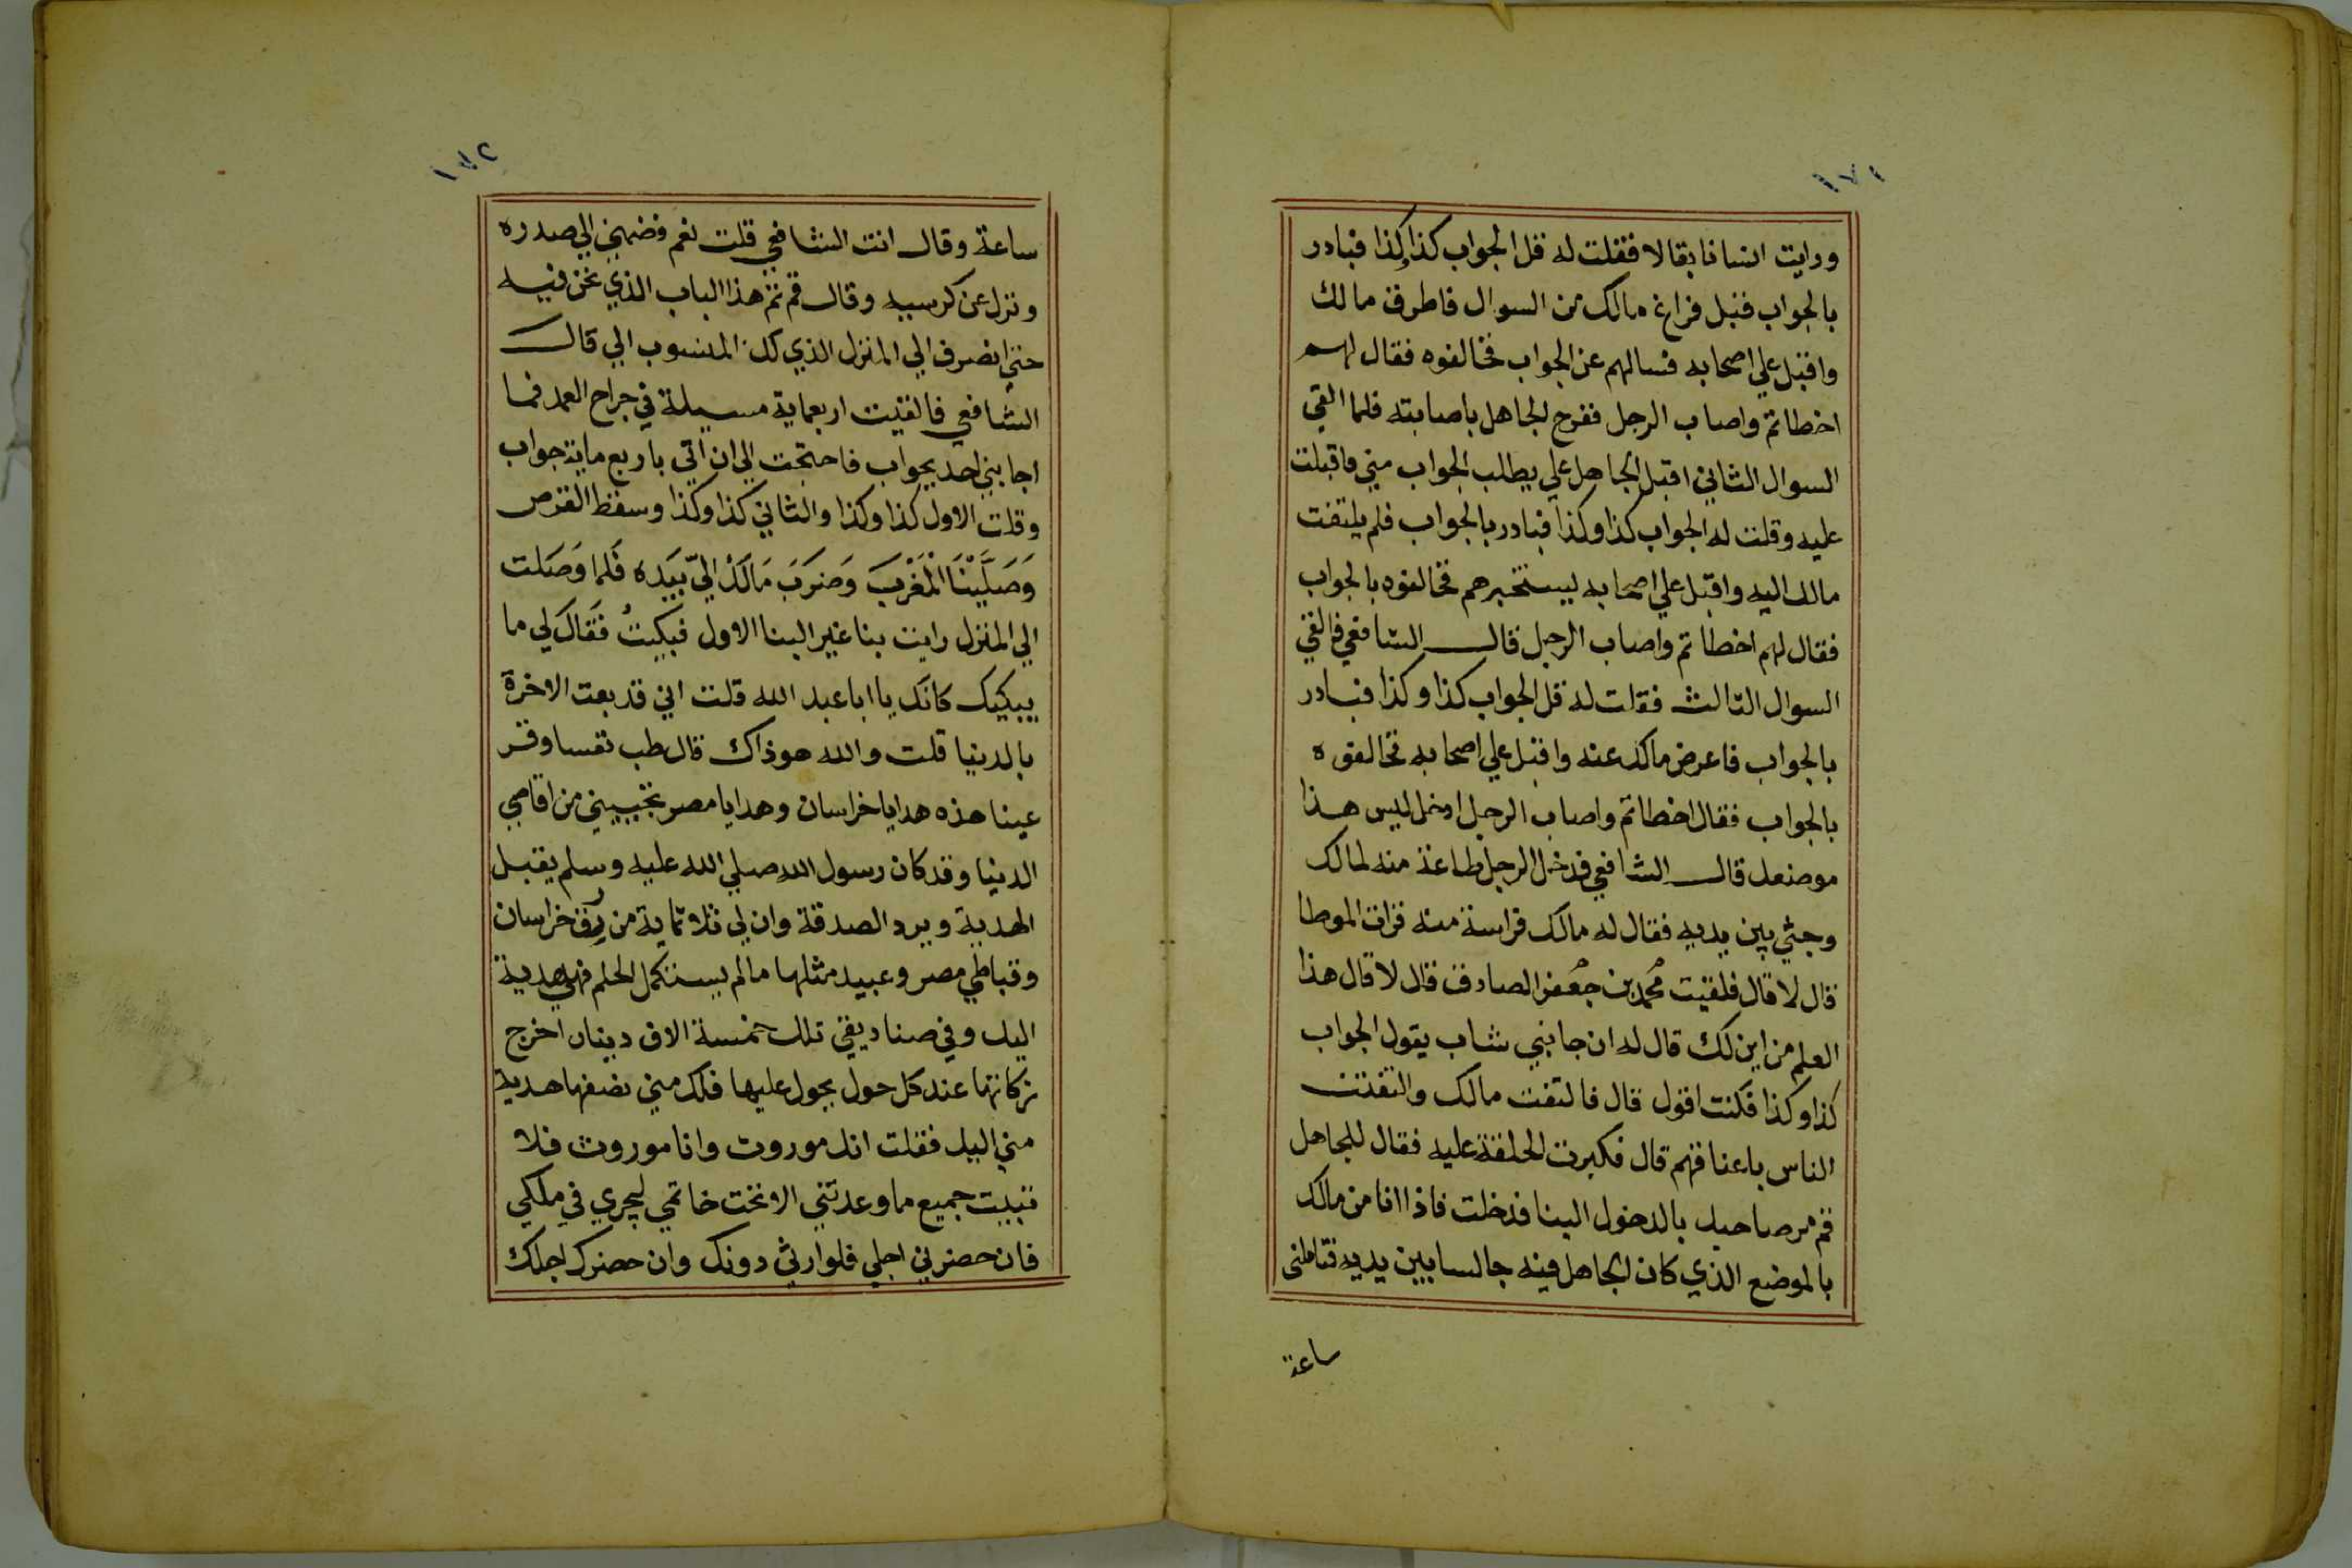 ١٧١
ورايت انسانا بقالا فقلت له قل الجواب كذا وكذا فبادر
بالجواب قبل فراغ مالك من السوال فاطرق مالك
واقبل علي اصحابه فسالهم عن الجواب فخالفوه فقال لهم
اخطاتم واصاب الرجل ففرح الجاهل باصابته فلما القي
السوال الثاني اقبل الجاهل علي يطلب الجواب مني فاقبلت
عليه وقلت له الجواب كذا وكذا فبادر بالجواب فلم يلتفت
مالك اليه واقبل علي اصحابه ليستخبرهم فخالفوه بالجواب
فقال لهم اخطاتم واصاب الرجل قال الشافعي فالقي
السوال الثالث فقلت له قل الجواب كذا وكذا فبادر
بالجواب فاعرض مالك عنه واقبل علي اصحابه فخالفوه
بالجواب فقال اخطاتم واصاب الرجل ادخل ليس هذا
موضعك قال الشافعي فدخل الرجل طاعة منه لمالك
وجثي بين يديه فقال له مالك فراسة منه قرات الموطا
قال لا قال فلقيت محمد بن جعفر الصادق قال لا قال هذا
العلم من اين لك قال له ان جانبي شاب يقول الجواب
كذا وكذا فكنت اقول قال فالتفت مالك والتفتت
الناس باعناقهم قال فكبرت الحلقة عليه فقال للجاهل
قم مر صاحبك بالدخول الينا فدخلت فاذا انا من مالك
بالموضع الذي كان الجاهل فيه جالسا بين يديه فتاملني
ساعة
١٧٢
ساعة وقال انت الشافعي قلت نعم فضمني الي صدره
ونزل عن كرسيه وقال قم تم هذا الباب الذي نحن فيه
حتي انصرف الي المنزل الذي لك المنسوب الي قال
الشافعي فالقيت اربعماية مسيلة في جراح العمد فما
اجابني احد بجواب فاحتجت الي ان اتي باربع ماية جواب
وقلت الاول كذا وكذا والثاني كذا وكذا وسقط القرص
وَصَلَّيْنَا الْمَغْرِبَ وَضَرَبَ مَالَكْ اليّ بَيَده فَلما وَصَلت
الي المنزل رايت بنا غير البنا الاول فبكيتُ فَقَال لي ما
يبكيك كانك يا ابا عبد الله قلت اني قد بعت الاخرة
بالدنيا قلت والله هو ذاك قال طب نفسا وقر
عينا هذه هدايا خراسان وهدايا مصر تجيبني من اقاصي
الدنيا وقد كان رسول الله صلي الله عليه وسلم يقبل
الهدية ويرد الصدقة وان لي ثلاثماية من رق خراسان
وقباطي مصر وعبيد مثلها ما لم يستكمل الحلم فهي هدية
اليك وفي صناديقي تلك خمسة الاف دينار اخرج
زكاتها عند كل حول يحول عليها فلك مني نصفها هدية
مني اليك فقلت انك موروث وانا موروث فلا
تبيت جميع ما وعدتني الا تحت خاتمي ليجري في ملكي
فان حضرني اجلي فلوارثي دونك وان حضرك اجلك